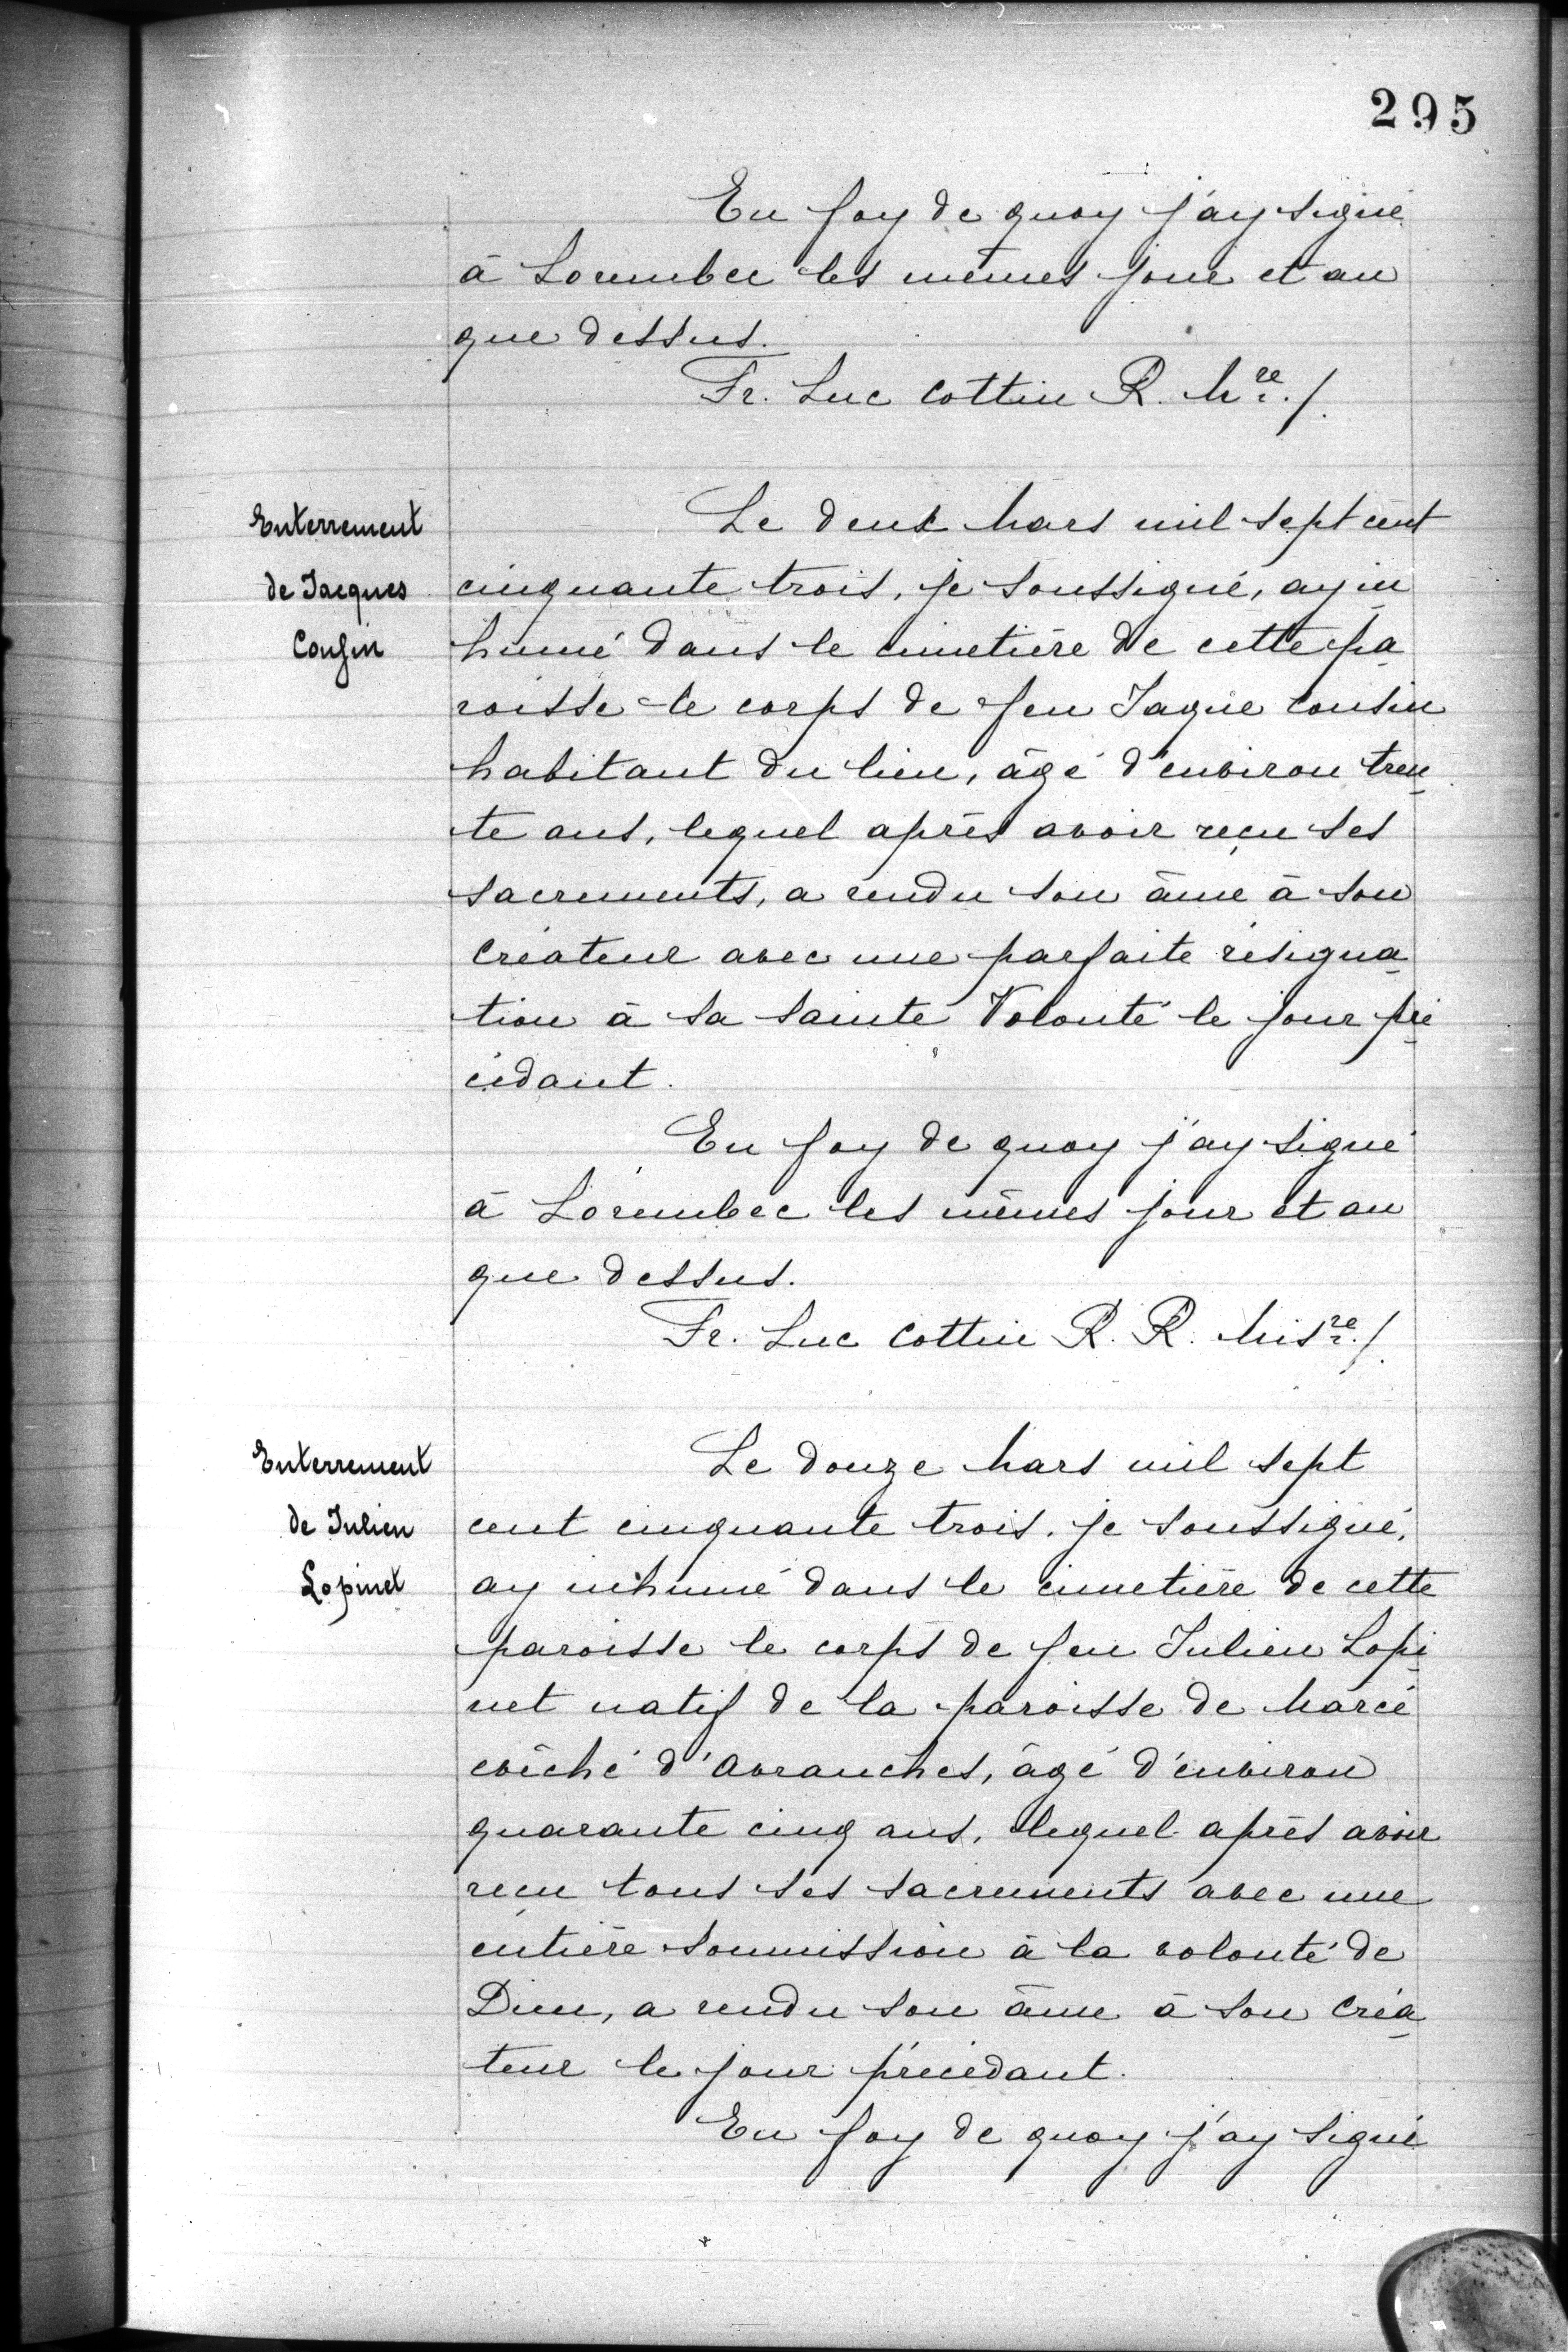 295
En foy de quoy j'ay signé
à Lorembec les mêmes jour et an
que dessus.
Fr. Luc Cottin R. M^re./.
Enterrement
de Jacques
Cousin
Le deux Mars mil sept cent
cinquante trois, je soussigné, ay in
humé dans le cimetière de cette pa
roisse le corps de feu Jaque Cousin
habitant du lieu, âgé d'environ tren
te ans, lequel après avoir reçu ses
sacrements, a rendu son âme à son
Créateur avec une parfaite résigna
tion à sa sainte Volonté le jour pré
cédant.
En foy de quoy j'ay signé
à Lorembec les mêmes jour et an
que dessus.
Fr. Luc Cottin R. R. Mis^re./.
Enterrement
de Julien
Lopinet
Le douze Mars mil sept
cent cinquante trois. je soussigné,
ay inhumé dans le cimetière de cette
paroisse le corps de feu Julien Lopi
net natif de la paroisse de Marcé
évêché d'Avranches, âgé d'environ
quarante cinq ans, lequel après avoir
reçu tous ses sacrements avec une
entière soumission à la volonté de
Dieu, a rendu son âme à son Créa
teur le jour précédant.
En foy de quoy j'ay signé